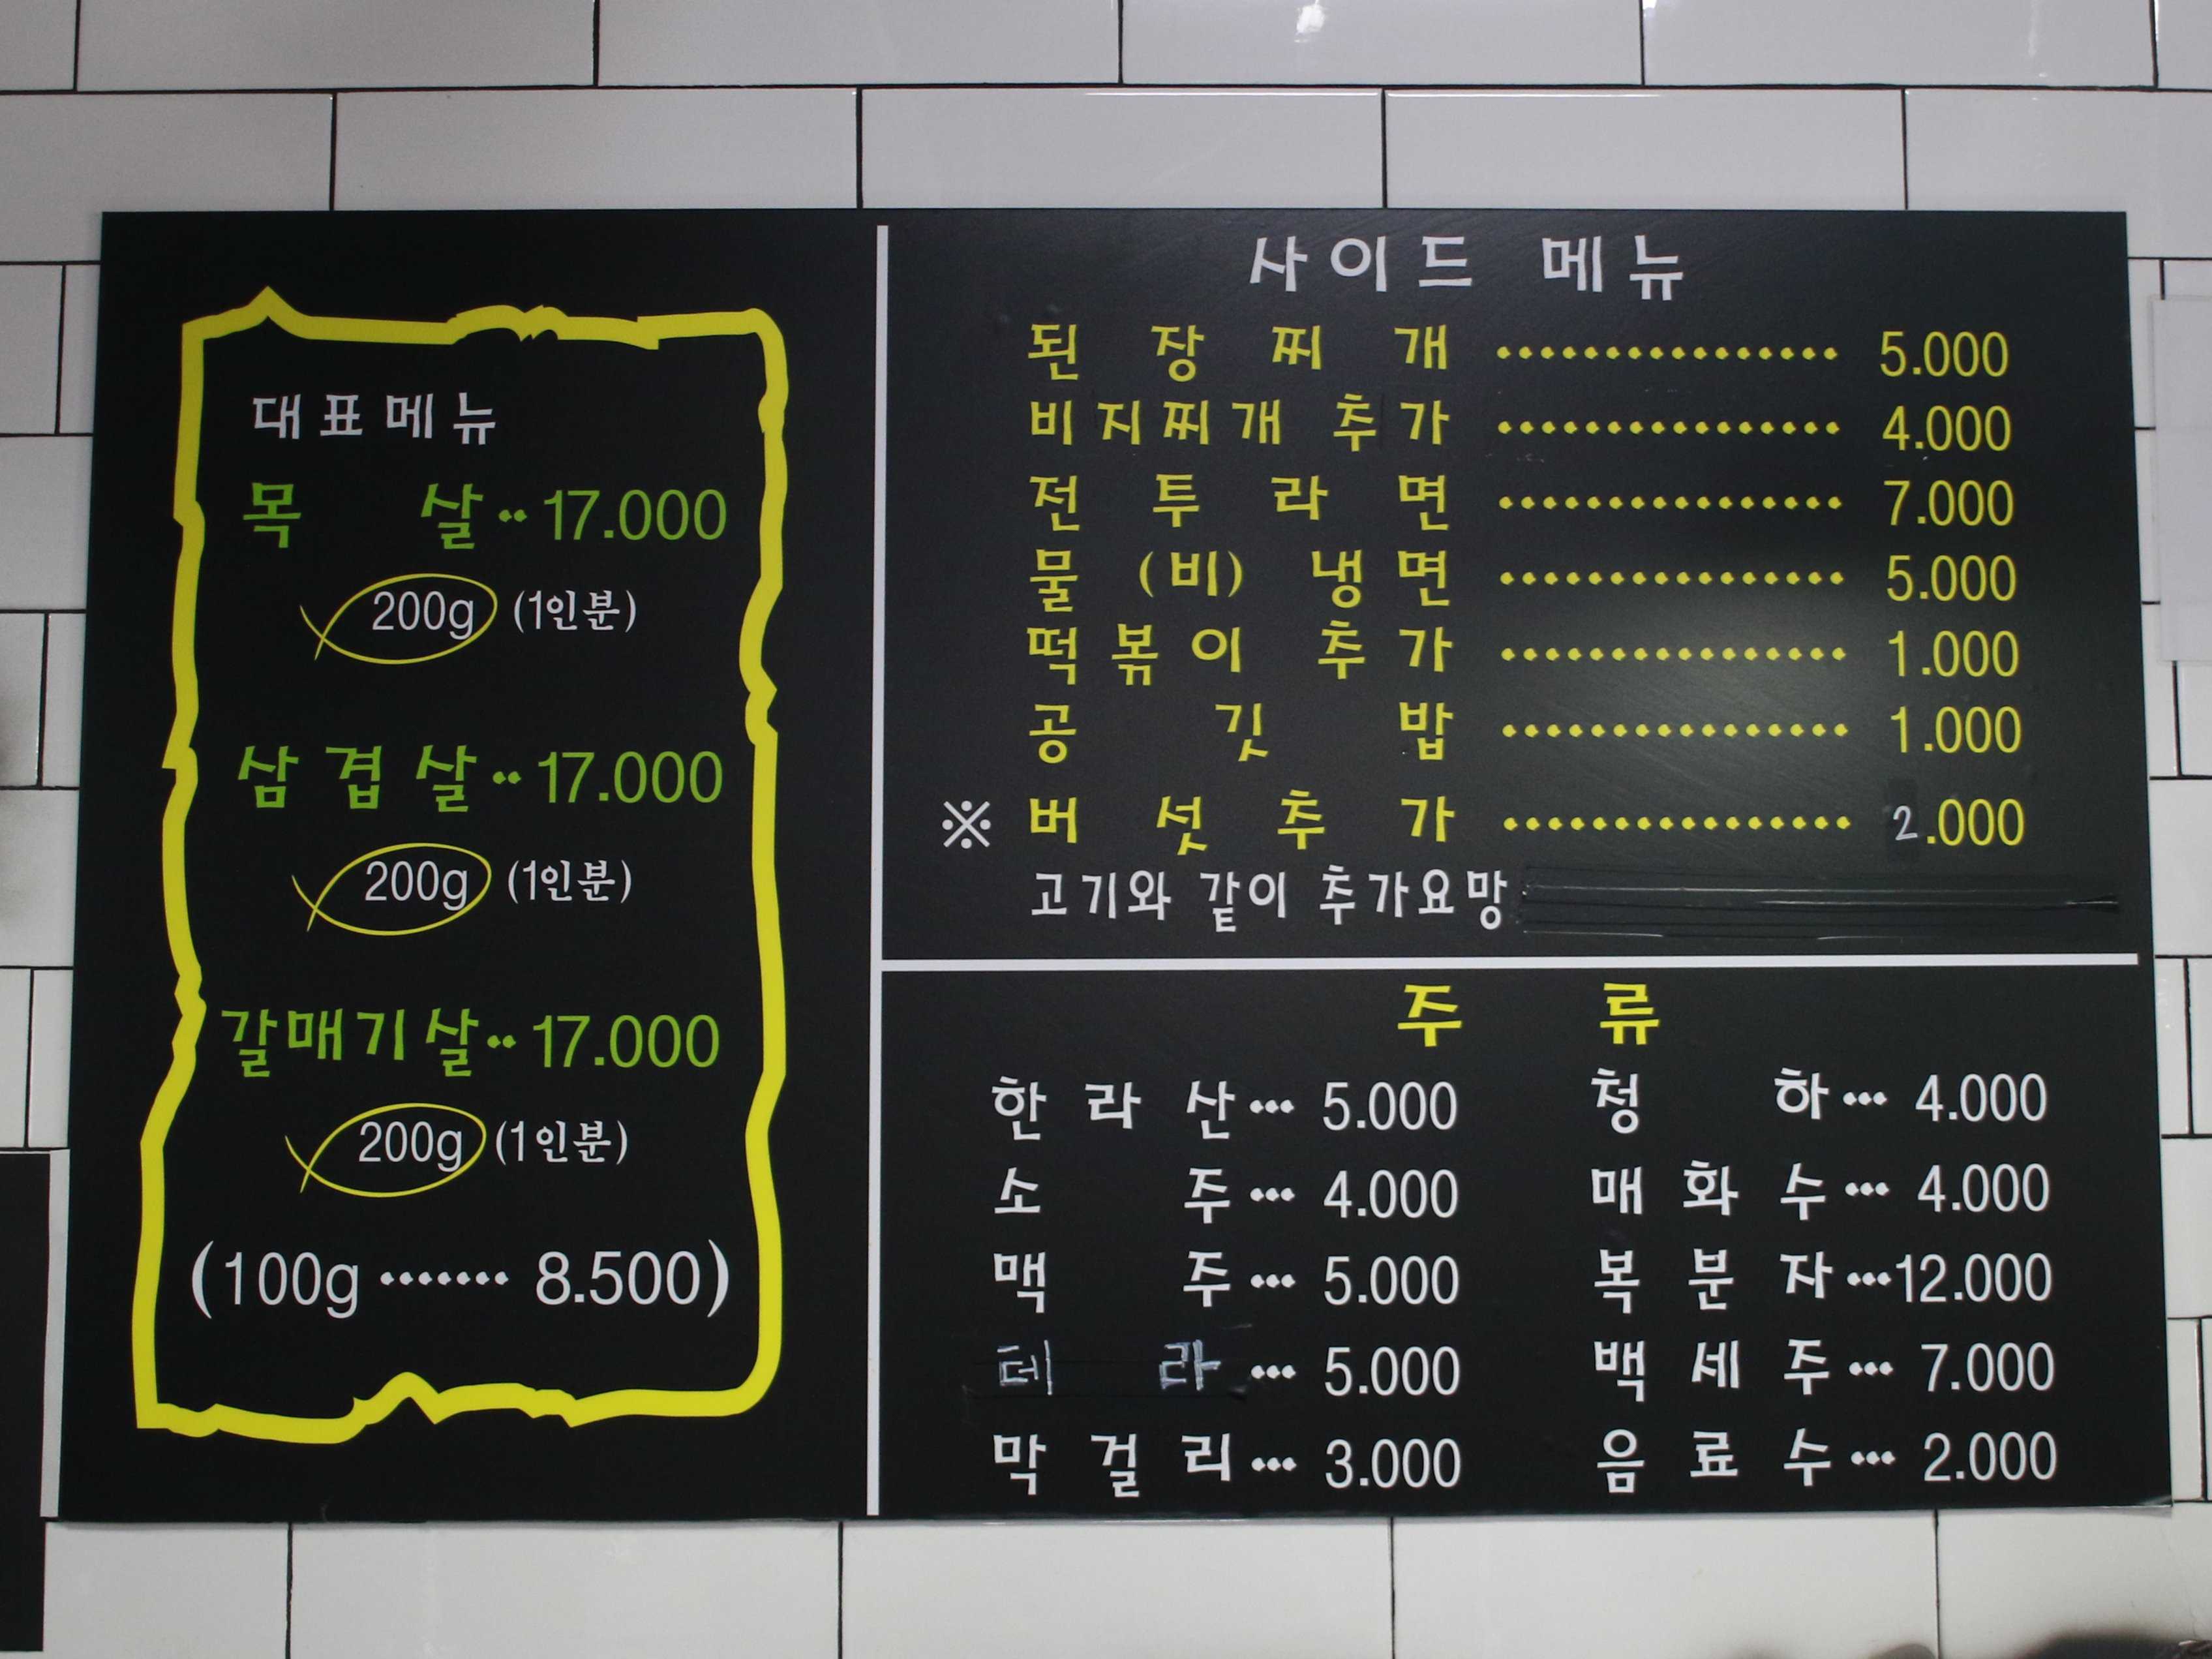 대표메뉴
목 살·· 17.000
200g (1인분)
삼겹살·· 17.000
200g (1인분)
갈매기살·· 17.000
200g (1인분)
(100g ······· 8.500)
사이드 메뉴
된장찌개 ················ 5.000
비지찌개 추가 ················ 4.000
전투라면 ················ 7.000
물(비)냉면 ················ 5.000
떡볶이 추가 ················ 1.000
공깃밥 ················ 1.000
※ 버섯추가 ················ 2.000
고기와 같이 추가요망
주 류
한라산··· 5.000
소주··· 4.000
맥주··· 5.000
테라··· 5.000
막걸리··· 3.000
청하··· 4.000
매화수··· 4.000
복분자···12.000
백세주··· 7.000
음료수··· 2.000